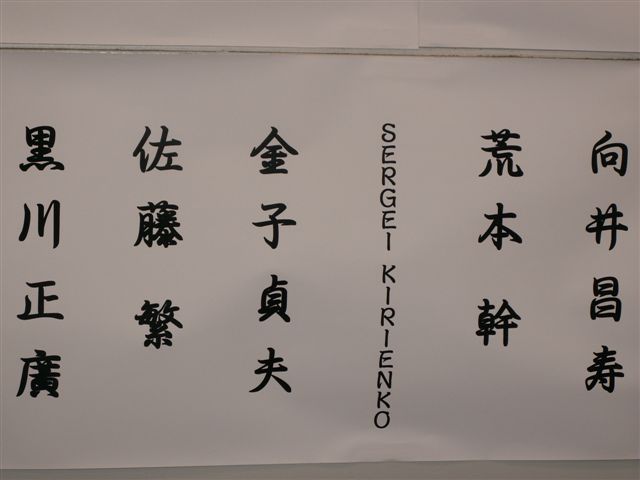 向井昌寿
荒本幹
SERGEI KIRIENKO
金子貞夫
佐藤繁
黒川正廣